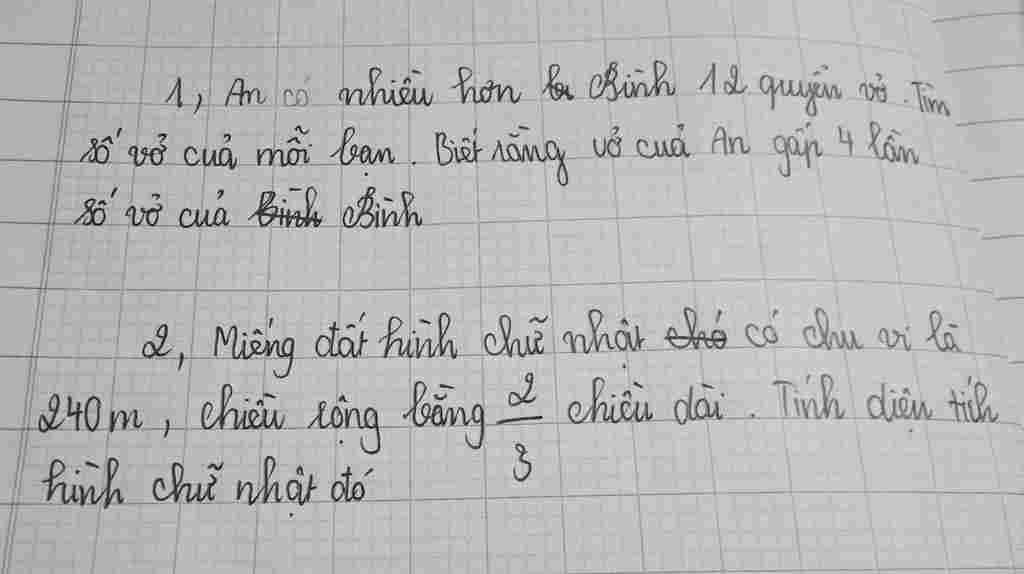 1, An có nhiều hơn Bình 12 quyển vở. Tìm
số vở của mỗi bạn. Biết rằng vở của An gấp 4 lần
số vở của Bình Bình
2, Miếng đất hình chữ nhật chó có chu vi là
240m, chiều rộng bằng 2/3 chiều dài. Tính diện tích
hình chữ nhật đó